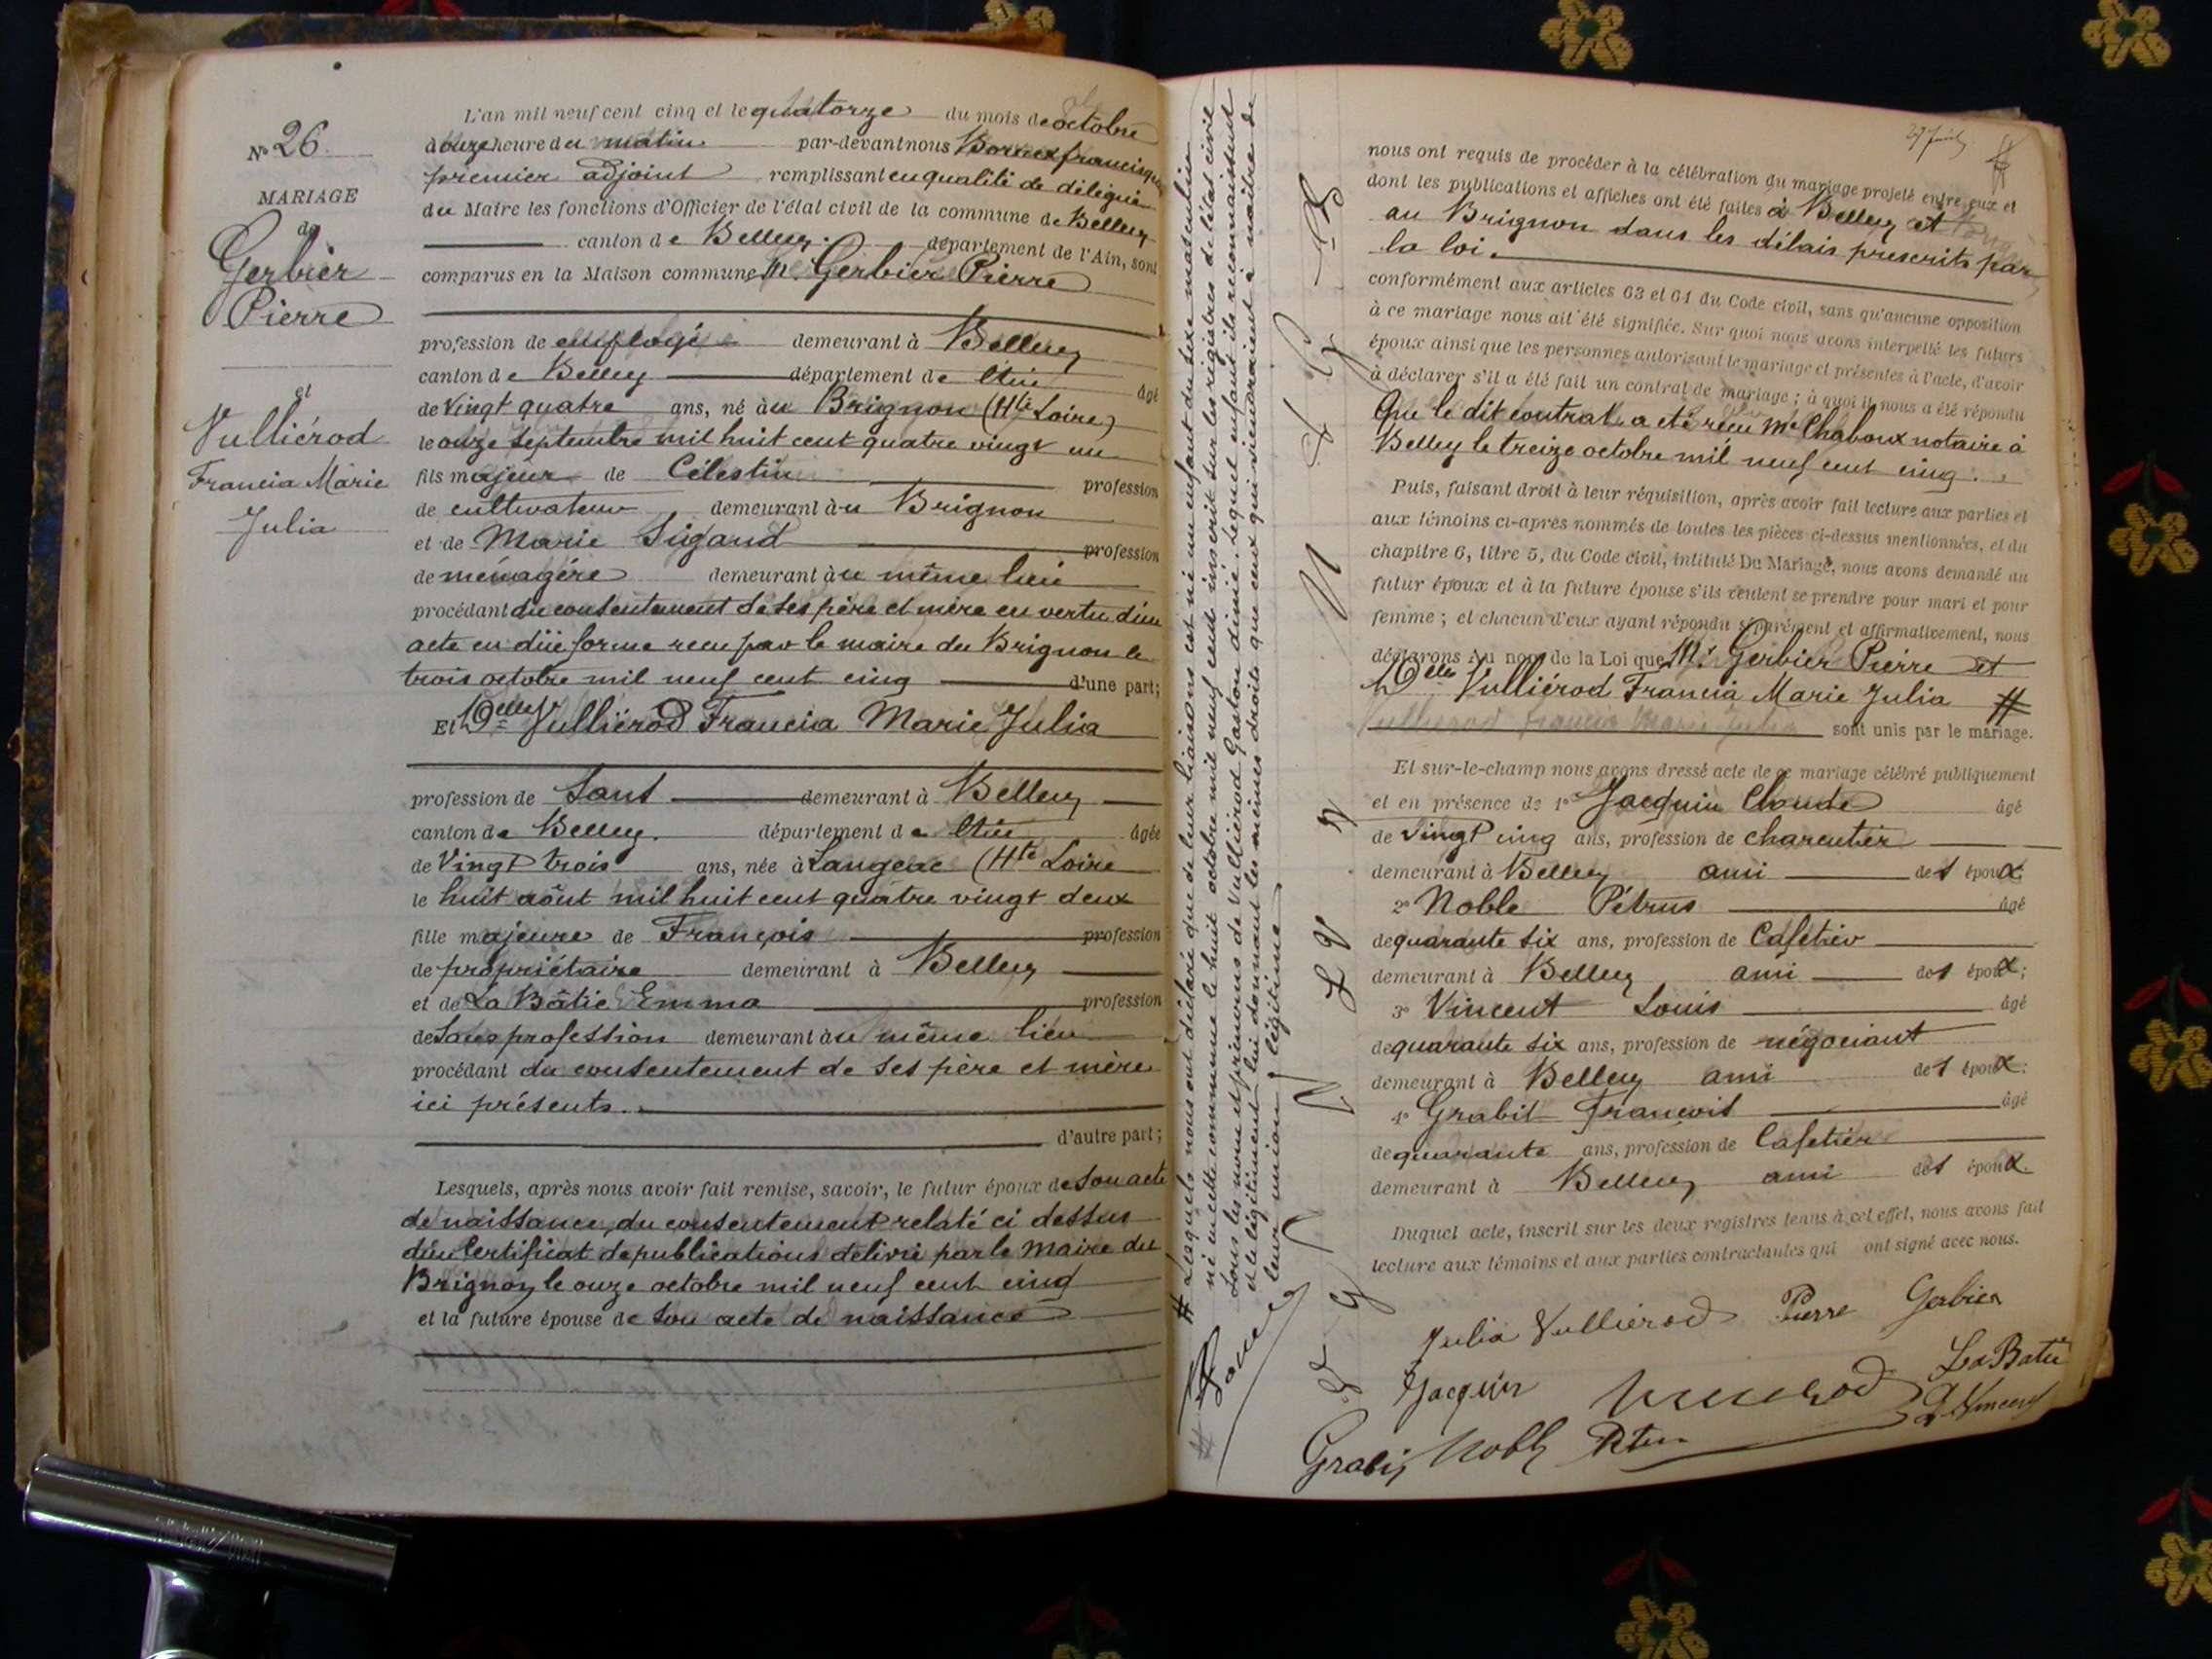 N° 26
MARIAGE
de
Gerbier
Pierre
et
Vulliérod
Francia Marie
Julia
L'an mil neuf cent cinq et le quatorze du mois de octobre
à onze heure du matin par-devant nous Bornex francisque
premier adjoint remplissant en qualité de délégué
du Maire les fonctions d'Officier de l'état civil de la commune de Belley
canton de Belley. département de l'Ain, sont
comparus en la Maison commune, Mr Gerbier Pierre
profession de employé demeurant à Belley
canton de Belley département de l'Ain âgé
de Vingt quatre ans, né à u Brignon (Hte Loire)
le onze septembre mil huit cent quatre vingt un
fils majeur de Célestin profession
de cultivateur demeurant à u Brignon
et de Marie Sigaud profession
de ménagère demeurant à u même lieu
procédant du consentement de ses père et mère en vertu d'un
acte en düe forme recu par le maire du Brignon le
trois octobre mil neuf cent cinq d'une part;
Et Delle Vulliérod Francia Marie Julia
profession de Sans demeurant à Belley
canton de Belley. département de l'Ain âgée
de Vingt trois ans, née à Langeac (Hte Loire
le huit août mil huit cent quatre vingt deux
fille majeure de François profession
de propriétaire demeurant à Belley
et de La Bâtie Emma profession
de Sans profession demeurant à u même lieu
procédant du consentement de ses père et mère
ici présents.
d'autre part;
Lesquels, après nous avoir fait remise, savoir, le futur époux de son acte
de naissance, du consentement relaté ci dessus
d'un Certificat de publications délivré par le Maire du
Brignon, le onze octobre mil neuf cent cinq
et la future épouse de son acte de naissance
# Lesquels nous ont déclaré que de leur liaison est né un enfant du sexe masculin
né en cette commune le huit octobre mil neuf cent inscrit sur les registres de l'état civil
sous les nom et prénoms de Vulliérod Gaston dinié. Lequel enfant ils reconnaissent
et légitiment lui donnant les mêmes droits que ceux qui viendraient à naître de
leur union légitime
nous ont requis de procéder à la célébration du mariage projeté entre eux et
dont les publications et affiches ont été faites à Belley et
au Brignon dans les délais prescrits par
la loi.
conformément aux articles 63 et 64 du Code civil, sans qu'aucune opposition
à ce mariage nous ait été signifiée. Sur quoi nous avons interpellé les futurs
époux ainsi que les personnes autorisant le mariage et présentes à l'acte, d'avoir
à déclarer s'il a été fait un contrat de mariage ; à quoi il nous a été répondu
Que le dit contrat a été recu Me Chaboux notaire à
Belley le treize octobre mil neuf cent cinq.
Puis, faisant droit à leur réquisition, après avoir fait lecture aux parties et
aux témoins ci-après nommés de toutes les pièces ci-dessus mentionnées, et du
chapitre 6, titre 5, du Code civil, intitulé Du Mariage, nous avons demandé au
futur époux et à la future épouse s'ils veulent se prendre pour mari et pour
femme ; et chacun d'eux ayant répondu séparément et affirmativement, nous
déclarons Au nom de la Loi que Mr Gerbier Pierre et
Delle Vulliérod Francia Marie Julia #
sont unis par le mariage.
Et sur-le-champ nous avons dressé acte de ce mariage célébré publiquement
et en présence de 1° Jacquin Claude âgé
de vingt cinq ans, profession de charcutier
demeurant à Belley ami des époux
2° Noble Pétrus âgé
de quarante six ans, profession de Cafetier
demeurant à Belley ami des époux;
3° Vincent Louis âgé
de quarante six ans, profession de négociant
demeurant à Belley ami des époux;
4° Grabit François âgé
de quarante ans, profession de Cafetier
demeurant à Belley ami des époux.
Duquel acte, inscrit sur les deux registres tenus à cet effet, nous avons fait
lecture aux témoins et aux parties contractantes qui ont signé avec nous.
Julia Vulliérod Pierre Gerbier
Jacquin La Batie
L. Vincent